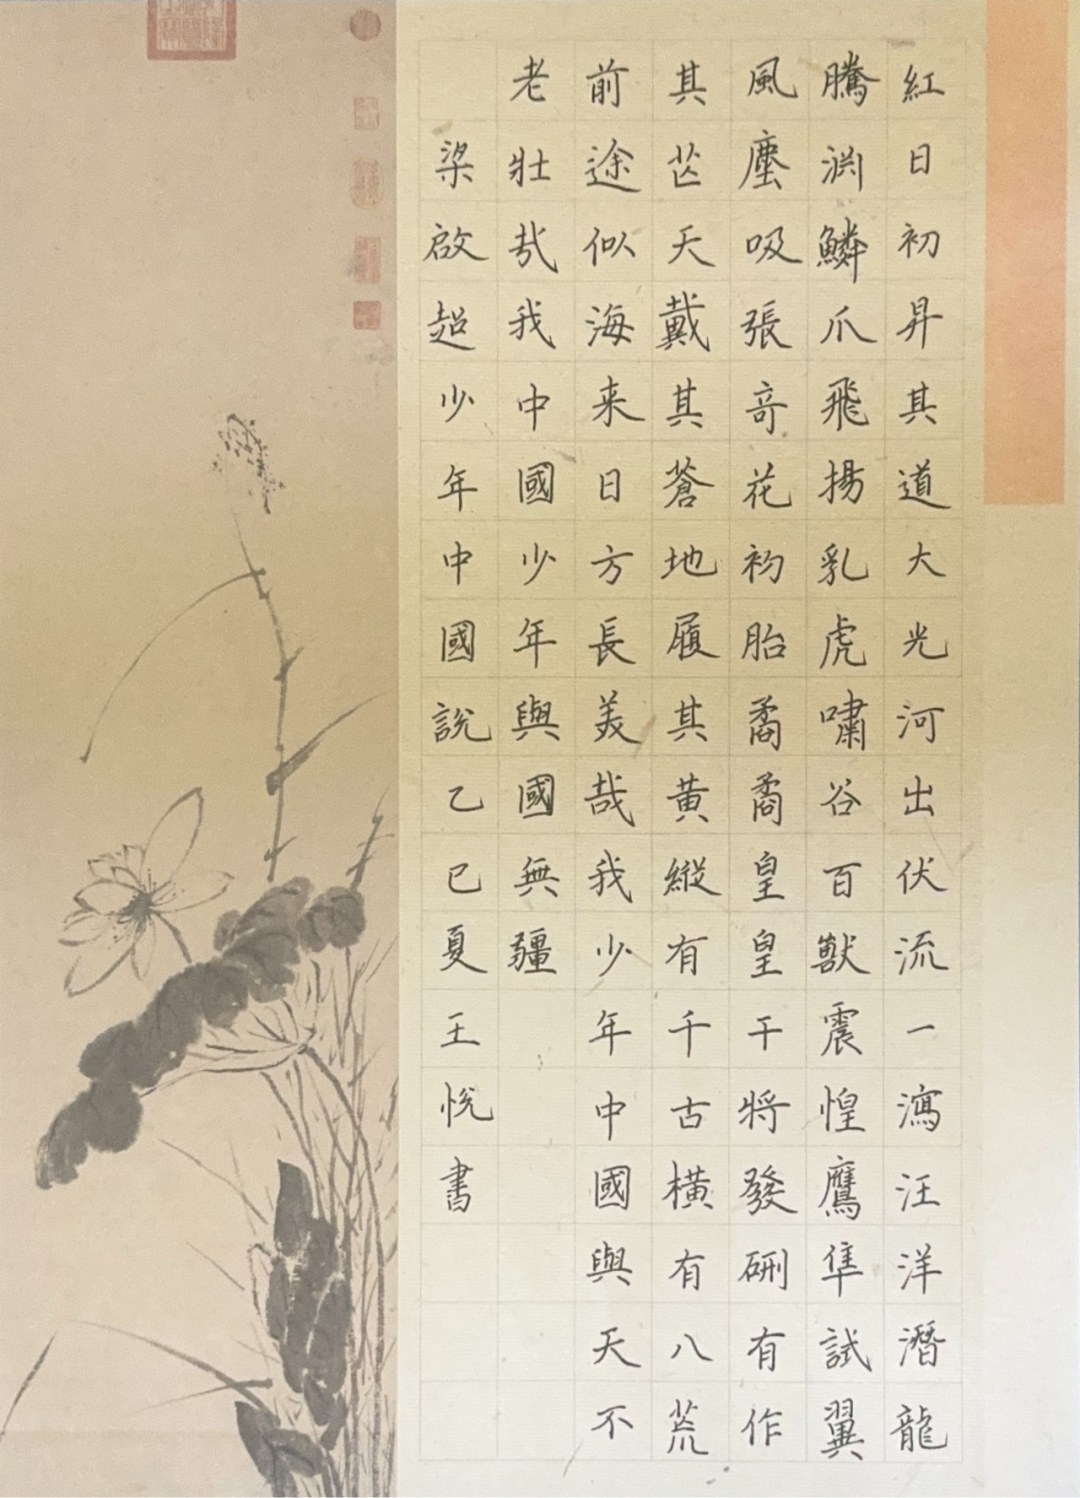 紅日初昇其道大光河出伏流一瀉汪洋潛龍
騰渕鱗爪飛揚乳虎嘯谷百獸震惶鷹隼試翼
風塵吸張奇花初胎矞矞皇皇干將發硎有作
其芒天戴其蒼地履其黃縱有千古橫有八荒
前途似海来日方長美哉我少年中國與天不
老壯哉我中國少年與國無疆
梁啟超少年中國說乙巳夏王悅書